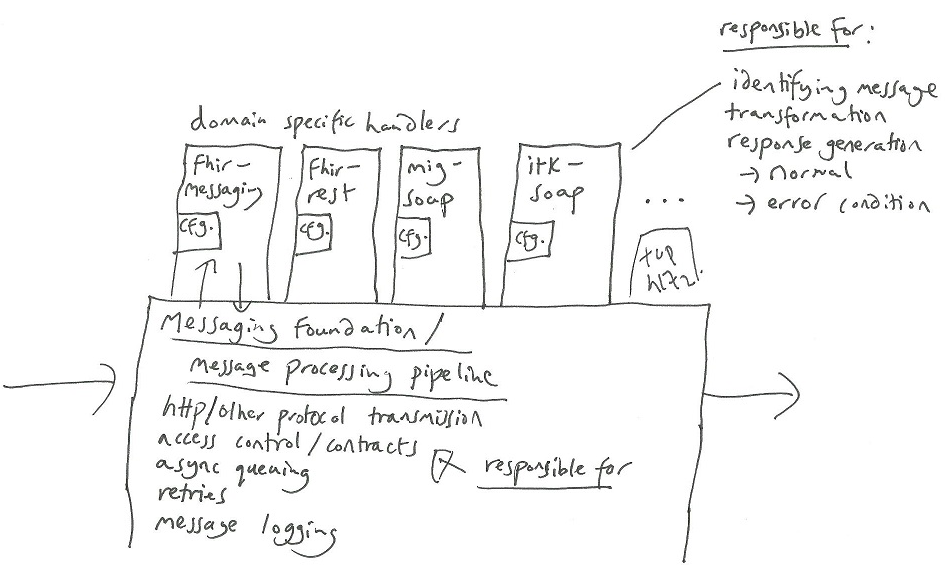 responsible for:
identifying message
transformation
response generation
→ normal
→ error condition
domain specific handlers
fhir-
messaging
cfg.
fhir-
rest
cfg.
mig-
soap
cfg.
itk-
soap
cfg.
...
hl72
Messaging Foundation /
message processing pipeline
http/other protocol transmission
access control/contracts
async queuing
retries
message logging
responsible for